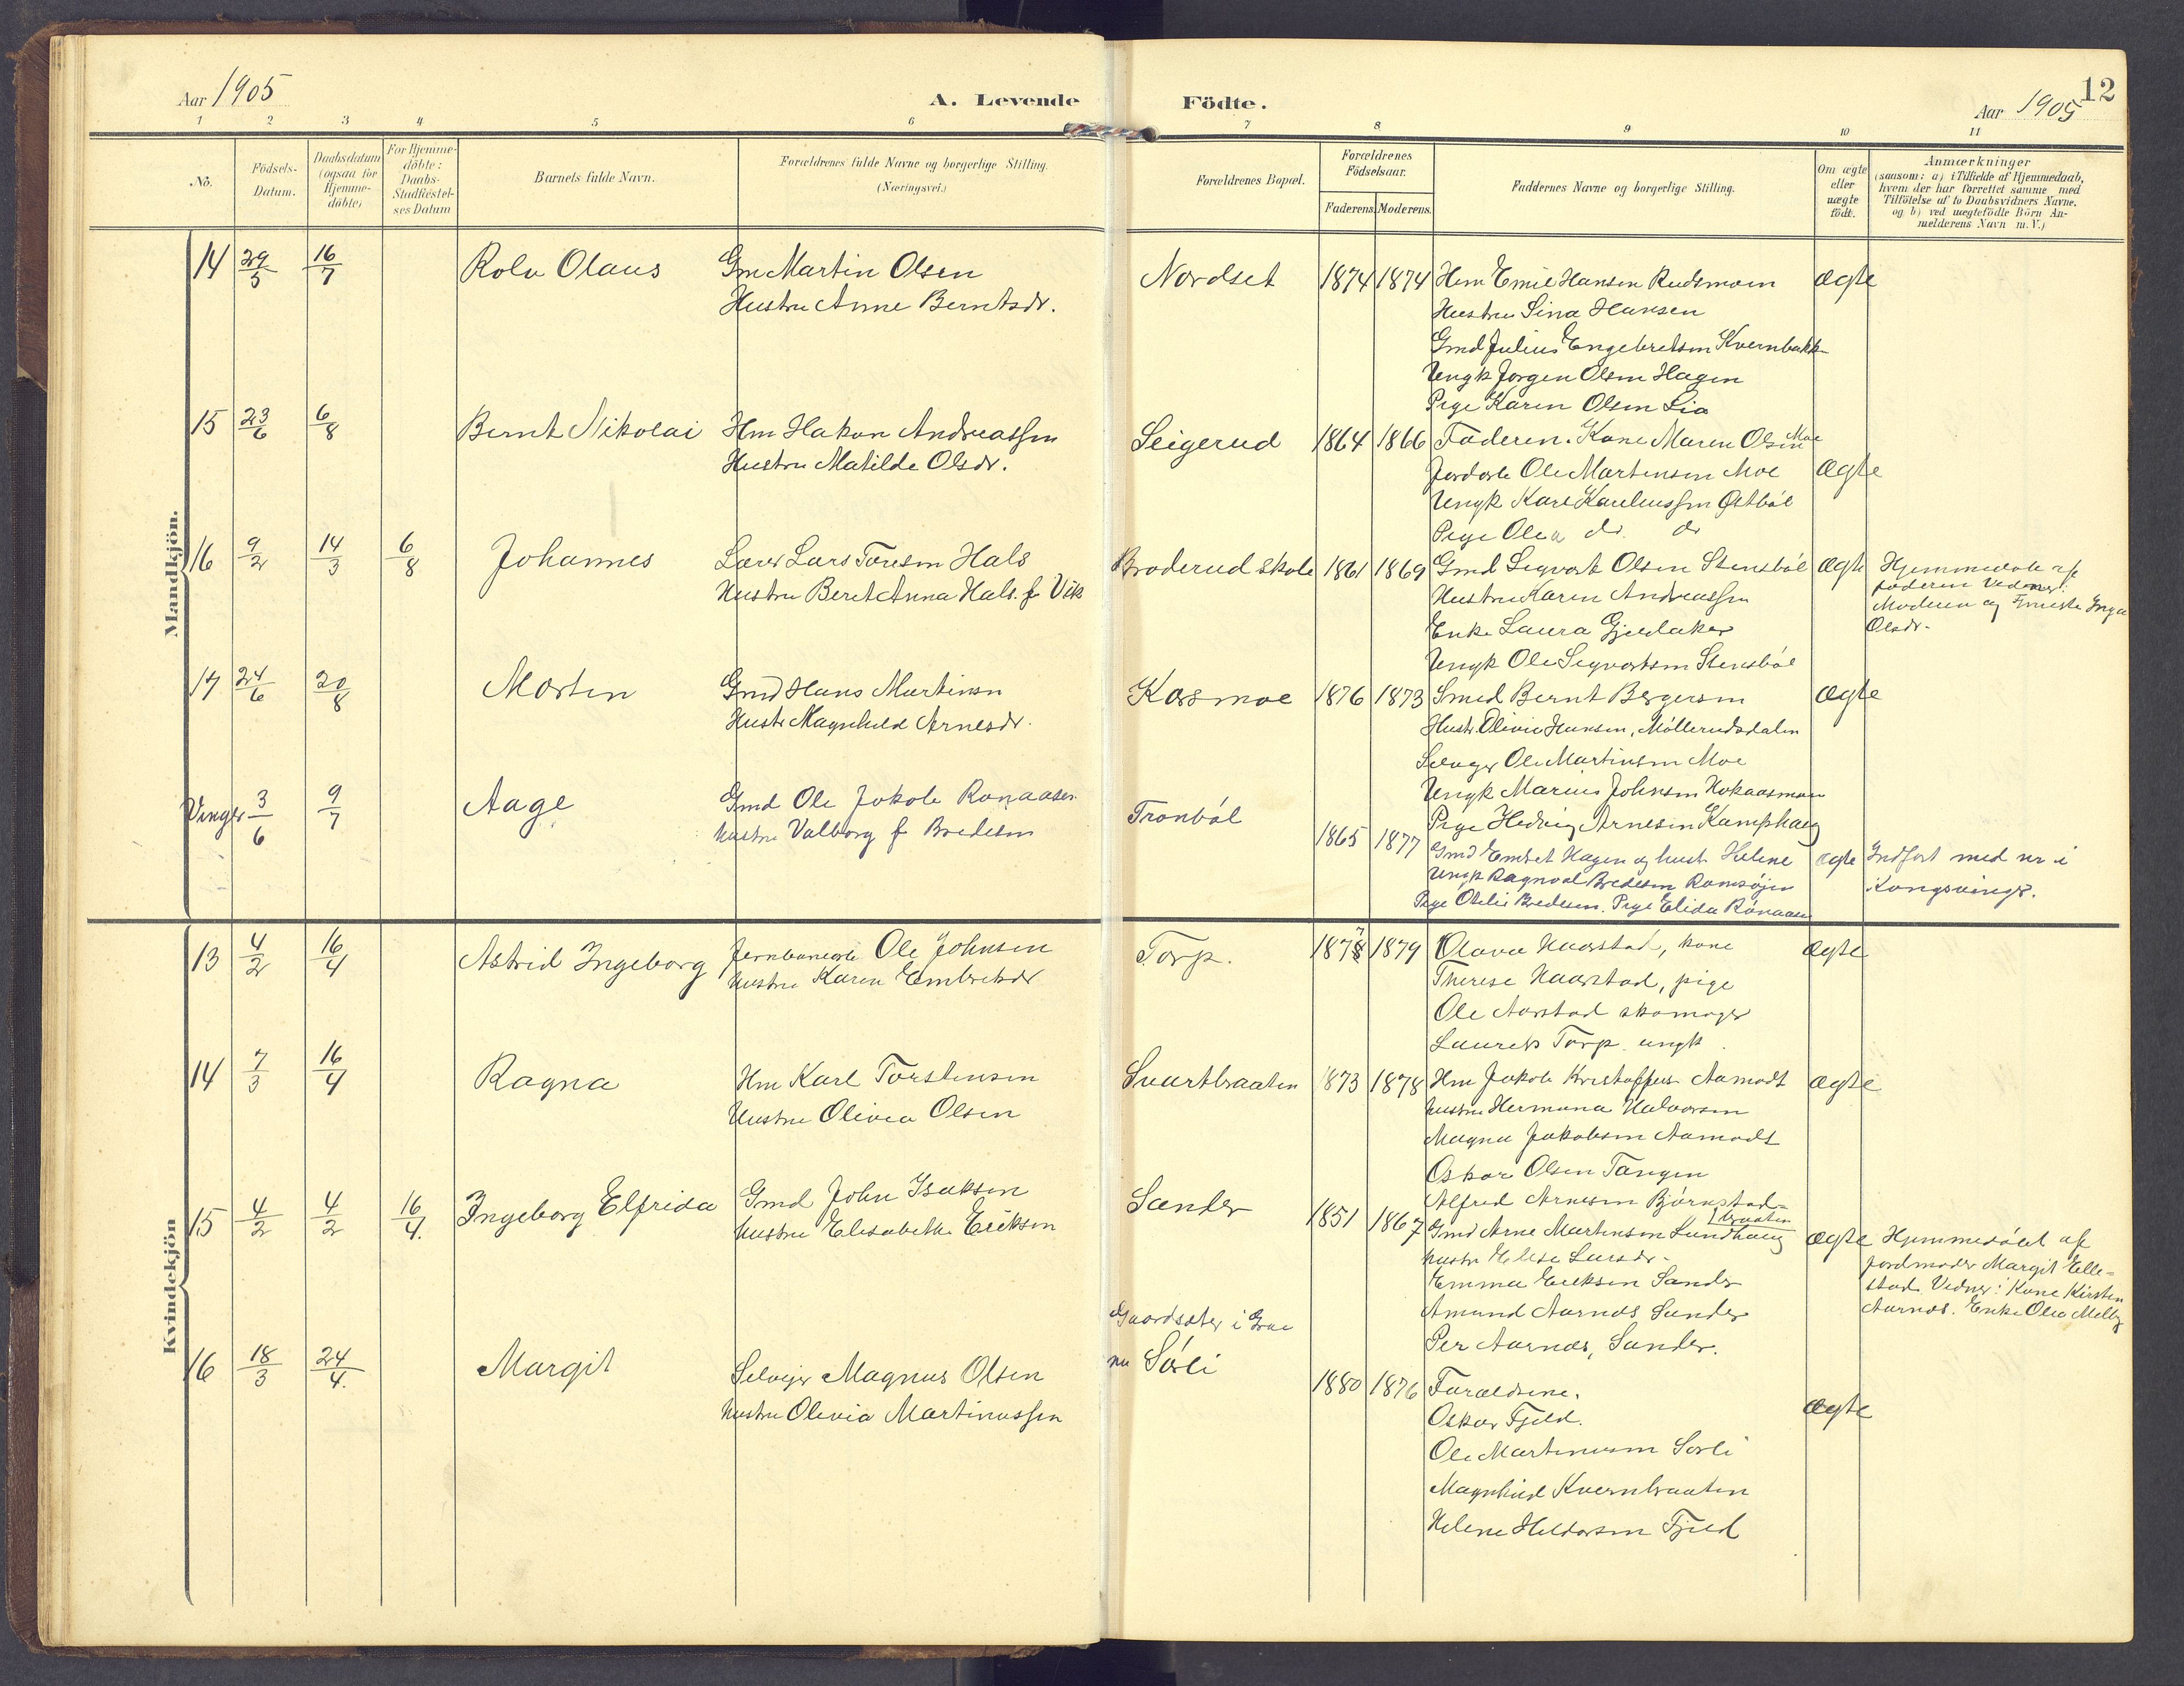 Aar 1905
A. Levende Födte.
Aar 1905
12
1 2 3 4 5 6 7 8 9 10 11
No.
Födsels-Datum.
Daabsdatum (ogsaa for Hjemme-döbte)
For Hjemme-döbte: Daabs-Stadfæstel-ses Datum
Barnets fulde Navn.
Forældrenes fulde Navne og borgerlige Stilling. (Næringsvei.)
Forældrenes Bopæl.
Forældrenes Födselsaar.
Faderens. Moderens.
Faddernes Navne og borgerlige Stilling.
Om ægte eller uægte födt.
Anmærkninger
(saasom: a) i Tilfælde af Hjemmedaab,
hvem der har forrettet samme med
Tilföielse af to Daabsvidners Navne.
og b) ved uægtefödte Börn An-
melderens Navn m. V.)
Mandkjön.
14 29/5 16/7 Rolv Olaus Gm Martin Olsen
Hustru Anne Berntsdr.
Nordset 1874 1874 Hm Emil Hansen Rudsmoen ægte
Hustru Lina Hansen
Gmd Julius Engebretsen Kvernbakk
Ungk Jørgen Olsen Hagen
Pige Karen Olsen Lia
15 23/6 6/8 Bernt Nikolai Hm Hakon Andreassen
Hustru Matilde Olsdr.
Seigerud 1864 1866 Faderen. Kone Maren Olsen Moe
Jordarb Ole Martensen Moe ægte
Ungk Karl Karelius­sen Østbøl
Pige Olea do. do
16 9/2 14/3 6/8 Johannes Lærer Lars Toresen Hals
Hustru Beret Anna Hals f. Vik
Broderud skole 1861 1869 Gmd Sigvart Olsen Stensbøl ægte
Hustru Karen Andreassen
Enke Laura Gjeslaker
Ungk Ole Sigvartsen Stensbøl
Hjemmedøbt af
faderen Vidner:
Moderen og Inga
Olsdr.
17 24/6 20/8 Morten Gmd Hans Martinsen
Hustr Magnhild Arnesdr.
Kosmoe 1876 1873 Smed Bernt Bergersen ægte
Hustr. Olivia Hansen, Møllerudsdalen
Selveger Ole Martinsen Moe
Ungk Marius Johnsen Hokaasmoen
Pige Hedvig Arnesen Kamphaug
Vinger 3/6 9/7 Aage Gmd Ole Jakob Ronaasen
hustru Valborg f Bredesen
Tronbøl 1865 1877 Gmd Embret Hagen og hust. Helene ægte
Ungk Ragnvald Bredesen Romsøjen
Pige Otilie Bredesen. Pige Elida Rønaasen
Indført med nr i
Kongsvinger.
Kvindekjön
13 4/2 16/4 Astrid Ingeborg Jernbanearb Ole Johnsen
hustru Karen Embretsdr
Torp. 1878 1879 Olava Haarstad, kone ægte
Therese Haarstad, pige
Ole Aarstad skomager
Laurits Torp. ungk.
14 7/3 16/4 Ragna Hm Karl Torstensen
Hustru Olivia Olsen
Svartbraaten 1873 1878 Hm Jakob Kristoffers Aamodt ægte
hustru Hermana Halvorsen
Magna Jakobsen Aamodt
Oskar Olsen Tangen
Alfred Arnesen Bjørnstad-
braaten
15 4/2 4/2 16/4. Ingeborg Elfrida Gmd John Isaksen
hustru Elisabeth Eriksen
Sander 1851 1867 Gmd Arne Martinsen Sundhaug ægte
hustr Helese Larsdr.
Emma Eriksen Sander
Amund Aarnes, Sander
Per Aarnæs, Sander.
Hjemmedøbt af
jordmoder Margit Elle-
stad. Vidner: Kone Kirsten
Aarnes. Enke Olea Melby
16 18/3 24/4. Margit Selveier Magnus Olsen
hustru Olivia Martinussen
Gaardsæter i Grue
nu Sørli
1880 1876 Forældrene. ægte
Oskar Fjeld.
Ole Martinusen Sørli
Magnhild Kvernbraaten
Helene Heldorsen Fjeld